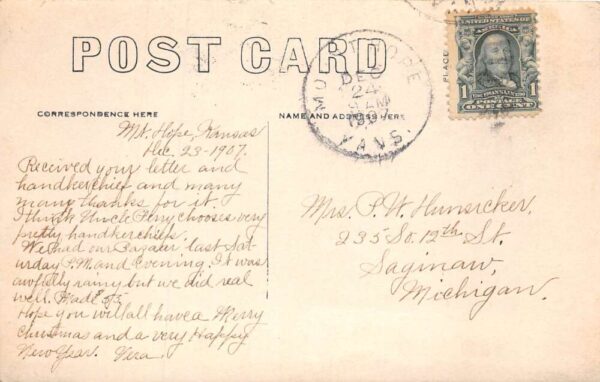 POST CARD
CORRESPONDENCE HERE
NAME AND ADDRESS HERE
PLACE
MOUNT HOPE
DEC
24
AM
1907
KANS.
UNITED STATES OF
AMERICA
FRANKLIN
1 POSTAGE 1
ONE CENT
Mt. Hope, Kansas
Dec. 23-1907.
Received your letter and
handkerchief and many
many thanks for it.
I think Uncle Perry chooses very
pretty handkerchiefs.
We had our Bazaar last Sat-
urday P.M. and Evening. It was
awfully rainy but we did real
well. Made
Hope you will all have a Merry
Christmas and a very Happy
New Year. Vera.
Mrs. P. W. Hunsicker,
235 So. 12th St.
Saginaw,
Michigan.